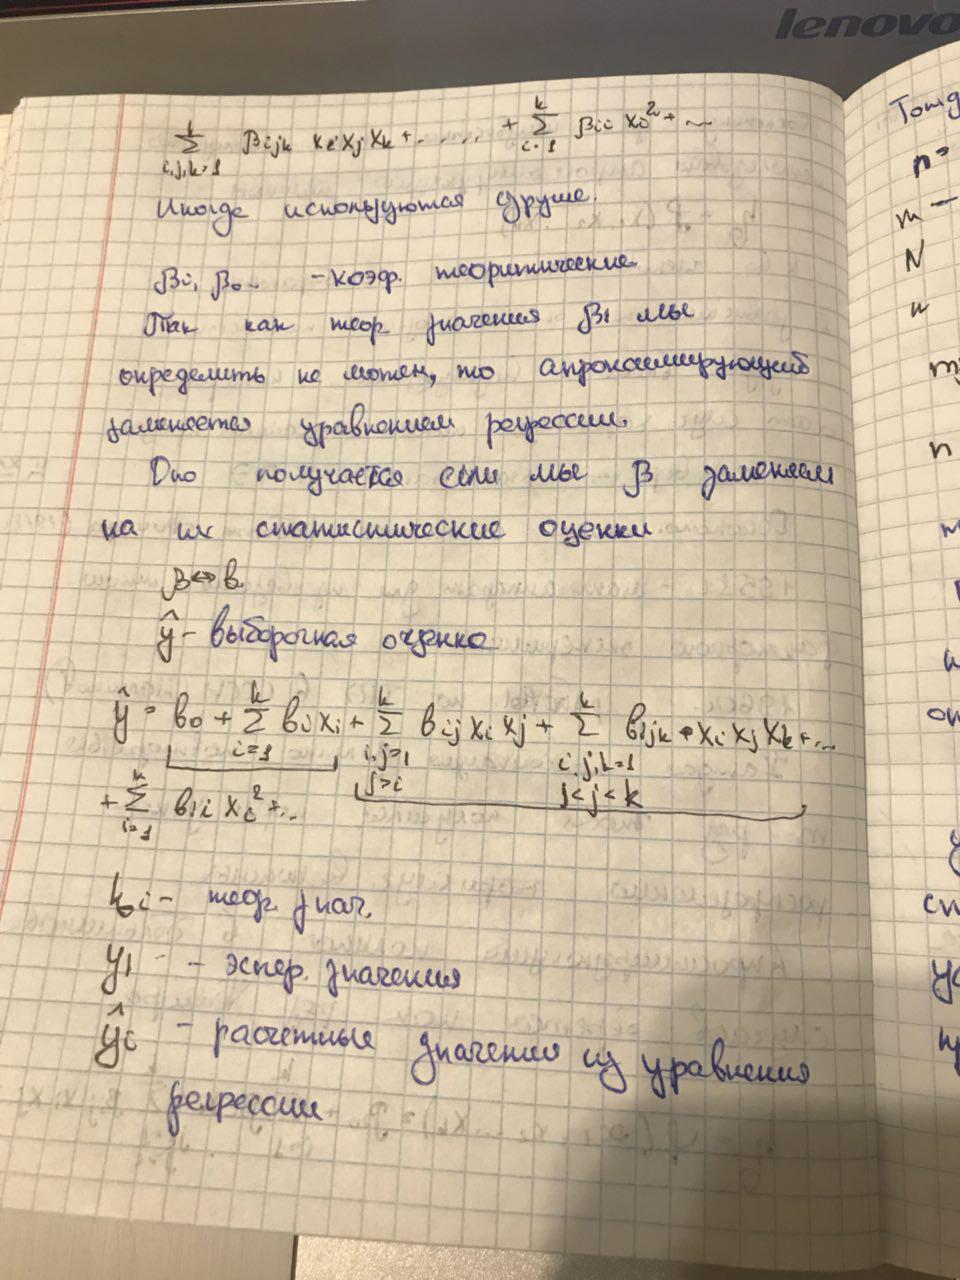 lenovo
k∑i,j,k=1 βijk xi xj xk + ..... + k∑i=1 βii xi² + ...
Иногда используются другие.
βi, β0 .. - коэф. теоритические
Так как теор значения βi мы
определить не можем, то апроксимирующий
заменяется уравнением регрессии.
Оно получается если мы β заменяем
на их статистические оценки
β ↔ в.
ŷ - выборочная оценка
ŷ = в0 + k∑i=1 вi xi + k∑i,j=1 j>i вij xi xj + k∑i,j,k=1 j<j<k вijk • xi xj xk + ...
+ k∑i=1 вii xi² + ..
i - теор. знач.
yi - - эспер. значения
ŷi - расчетные значения из уравнения
регрессии
Тогд
n =
m -
N
n
m
n